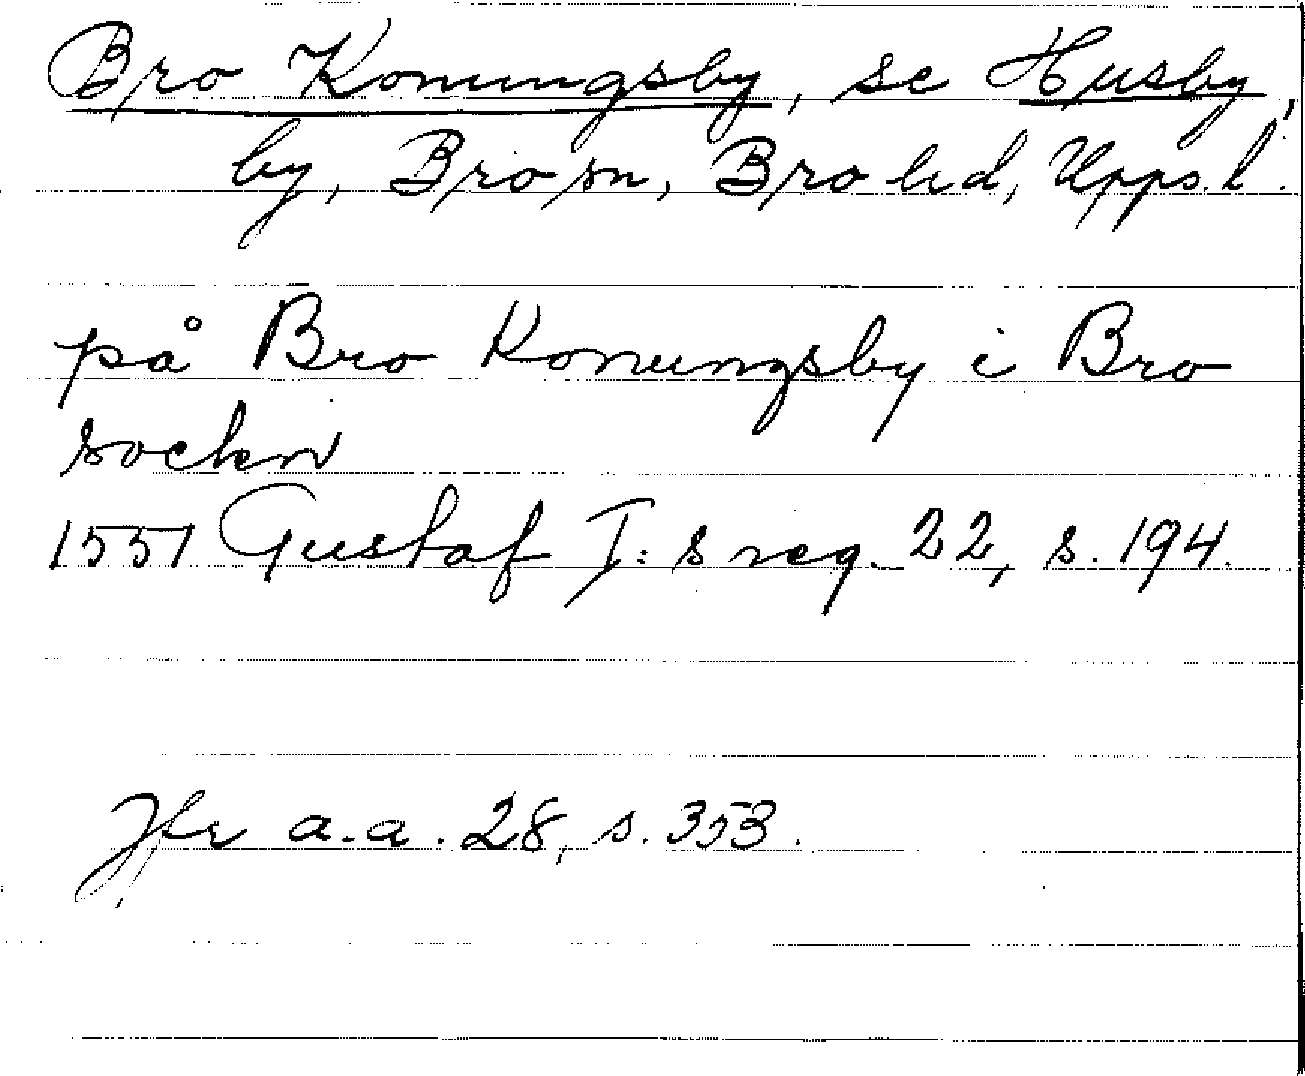 Bro Konungsby, se Husby,
by, Bro sn, Bro hd, Upps. l.
på Bro Konungsby i Bro
sockn
1551 Gustaf I:s reg. 22, s. 194.
Jfr a.a. 28, s. 353.